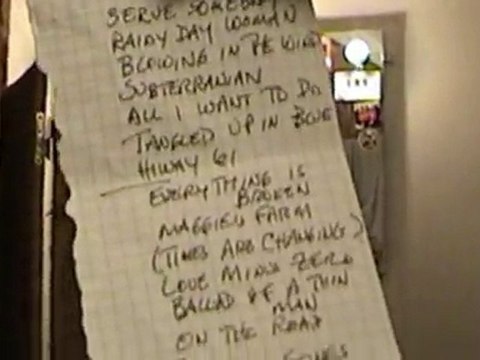 SERVE SOMEBODY
RAINY DAY WOMAN
BLOWING IN THE WIND
SUBTERRANIAN
ALL I WANT TO DO
TANGLED UP IN BLUE
HIWAY 61
EVERYTHING IS
BROKEN
MAGGIES FARM
(TIMES ARE CHANGING)
LOVE MINUS ZERO
BALLAD OF A THIN
MAN
ON THE ROAD